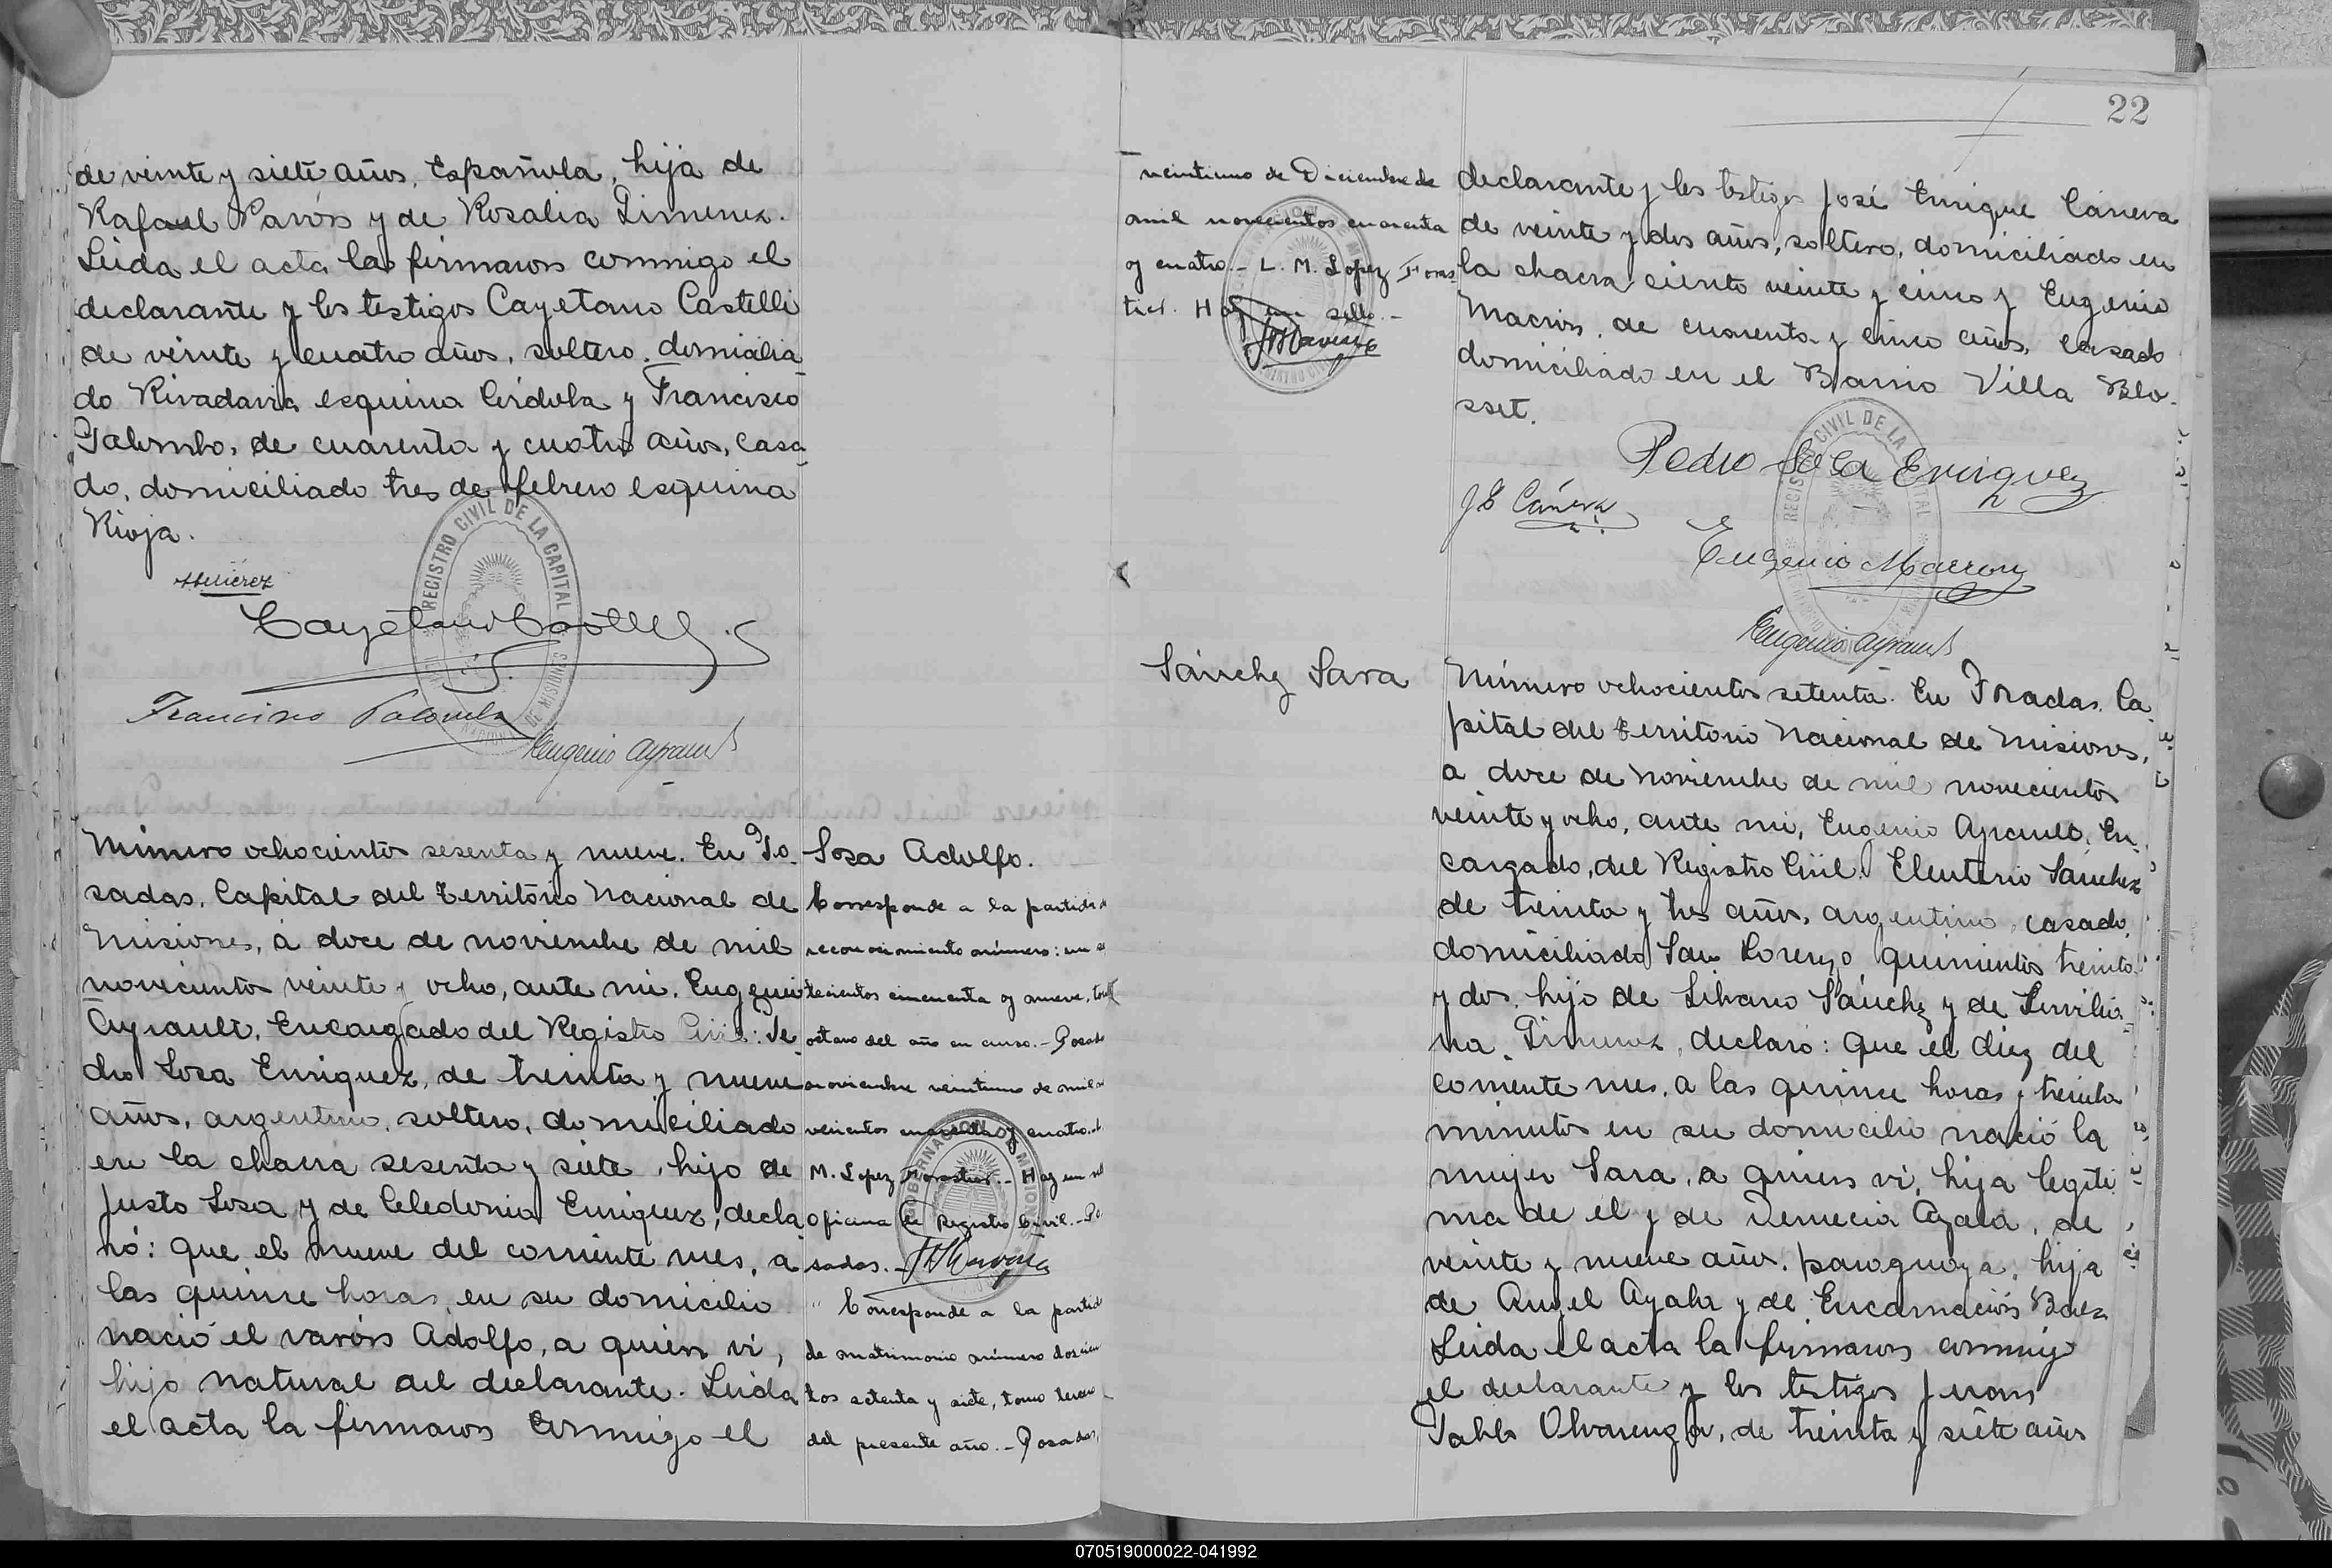 de veinte y siete años, Española, hija de
Rafael Pavón y de Rosalia Jimenez.
Leida el acta la firmaron conmigo el
declarante y los testigos Cayetano Castelli
de veinte y cuatro años, soltero, domicilia
do Rivadavia esquina Córdoba y Francisco
Palombo, de cuarenta y cuatro años, casa
do, domiciliado tres de febrero esquina
Rioja.
Cayetano Castelli
Francisco Palombo
Eugenio Ayrault
REGISTRO CIVIL DE LA CAPITAL
DE MISIONES
Número ochocientos sesenta y nueve. En Po
sadas, Capital del Territorio Nacional de
Misiones, a doce de noviembre de mil
novecientos veinte y ocho, ante mi, Eugenio
Ayrault, Encargado del Registro Civil: Pe
dro Sosa Enriquez, de treinta y nueve
años, argentino, soltero, domiciliado
en la chacra sesenta y siete, hijo de
Justo Sosa y de Celedonia Enriquez, decla
ró: que el nueve del corriente mes, a
las quince horas, en su domicilio
nació el varón Adolfo, a quien vi,
hijo natural del declarante. Leida
el acta la firmaron conmigo el
Sosa Adolfo.
Corresponde a la partida
reconocimiento número: un se
tecientos cincuenta y nueve, tomo
octavo del año en curso.- Posadas
noviembre veintiuno de mil no
vecientos cuarenta y cuatro.
M. Lopez Forastier.- Hay un
Oficina de Registro Civil.- Po
sadas.-
Corresponde a la partida
de matrimonio número doscien
tos setenta y siete, tomo tercero
del presente año.- Posadas,
22
veintiuno de Diciembre de
mil novecientos cuarenta
y cuatro.- L. M. Lopez Foras
tier. Hay un sello.-
declarante y los testigos José Enrique Cáneva
de veinte y dos años, soltero, domiciliado en
la chacra ciento veinte y cinco y Eugenio
Macrón, de cuarenta y cinco años, casado
domiciliado en el Barrio Villa Blo-
sset.
Pedro Sosa Enriquez
J E Cáneva
Eugenio Macron
Eugenio Ayrault
REGISTRO CIVIL DE LA CAPITAL
Sánchez Sara
Número ochocientos setenta. En Posadas, Ca
pital del Territorio Nacional de Misiones,
a doce de noviembre de mil novecientos
veinte y ocho, ante mi, Eugenio Ayrault, En
cargado, del Registro Civil: Eleuterio Sánchez
de treinta y tres años, argentino, casado,
domiciliado San Lorenzo quinientos treinta
y dos, hijo de Libano Sánchez y de Servilia
na Jimenez, declaró: que el diez del
corriente mes, a las quince horas y treinta
minutos en su domicilio nació la
mujer Sara, a quien vi, hija legiti
ma de el y de Demecia Ayala, de
veinte y nueve años, paraguaya, hija
de Angel Ayala y de Encarnación Baez
Leida el acta la firmaron conmigo
el declarante y los testigos Juan
Pablo Alvarenga, de treinta y siete años
070519000022-041992